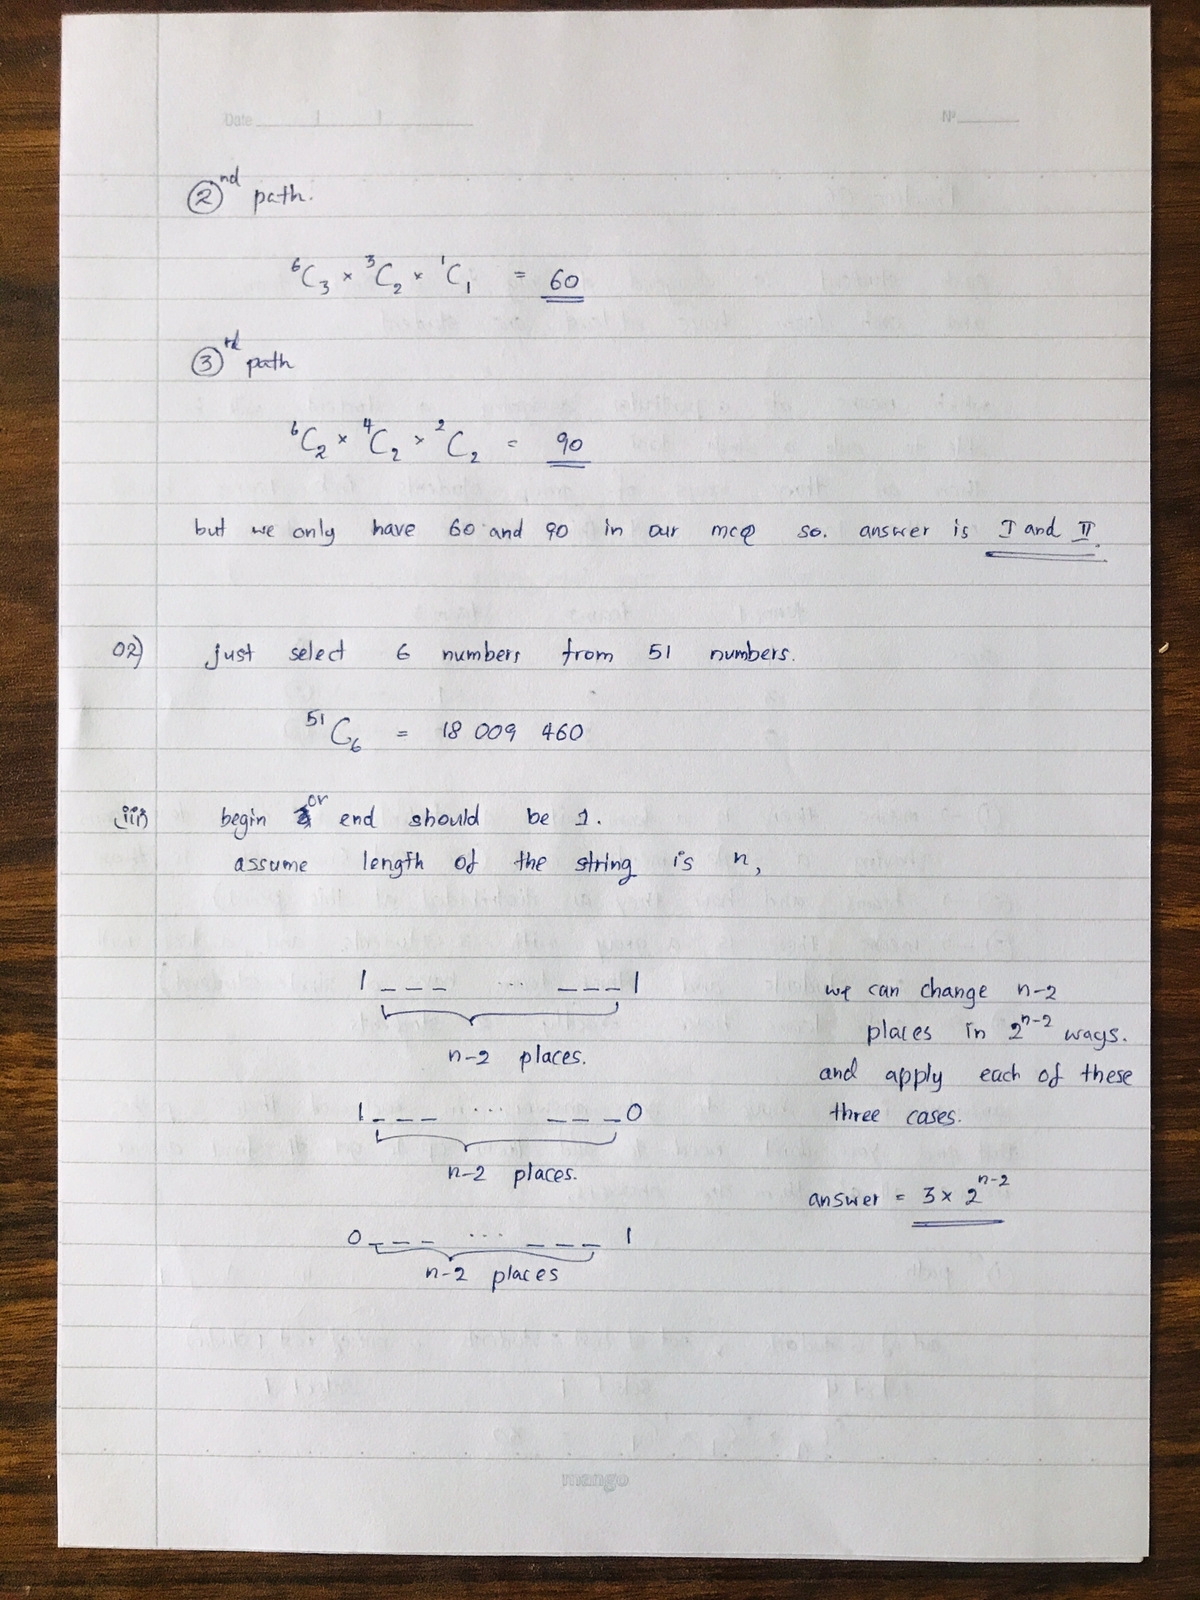 Date
Nº
2nd path.
⁶C₃ × ³C₂ × ¹C₁ = 60
3rd path
⁶C₂ × ⁴C₂ × ²C₂ = 90
but we only have 60 and 90 in our mcq so. answer is I and II.
02) just select 6 numbers from 51 numbers.
⁵¹C₆ = 18 009 460
iii) begin or end should be 1.
assume length of the string is n,
1 _ _ _ ... _ _ _ 1
n-2 places.
1 _ _ _ .... _ _ _ 0
n-2 places.
0 _ _ _ ... _ _ _ 1
n-2 places
we can change n-2
places in 2ⁿ⁻² ways.
and apply each of these
three cases.
answer = 3 × 2ⁿ⁻²
mango